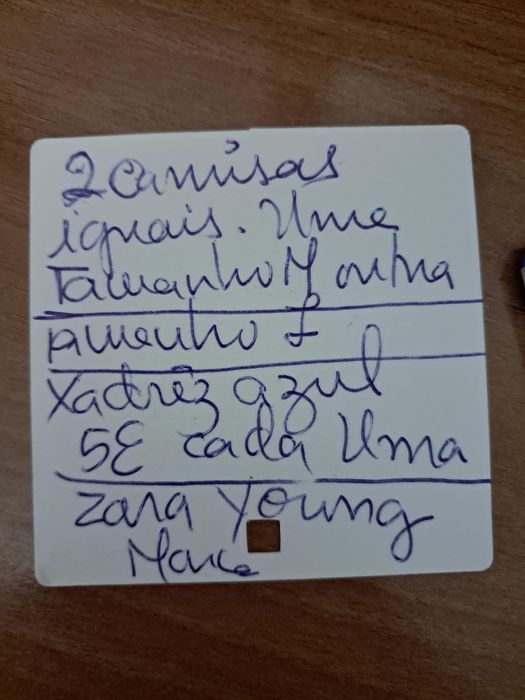 2 camisas
iguais. Uma
Tamanho M outra
tamanho L
Xadrêz azul
5€ cada Uma
Zara Young
Marca